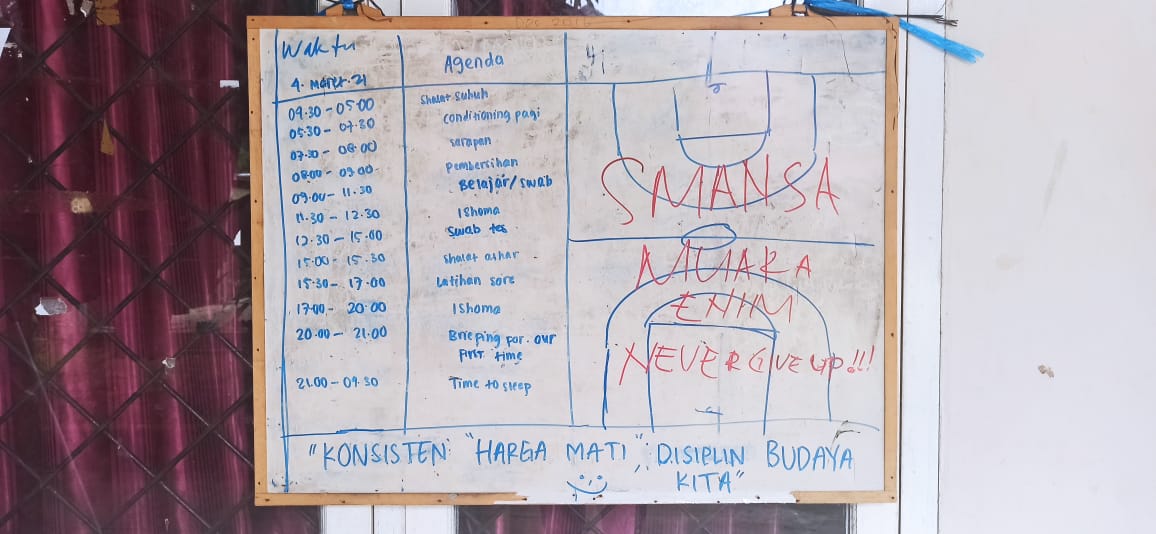 Waktu Agenda
4. Maret. 21
04.30 - 05.00 Shalat Subuh
05.30 - 07.30 conditioning pagi
07.30 - 08.00 sarapan
08.00 - 09.00 Pembersihan
09.00 - 11.30 Belajar/swab
11.30 - 12.30 Ishoma
12.30 - 15.00 Swab tes
15.00 - 15.30 shalat ashar
15.30 - 17.00 Latihan sore
17.00 - 20.00 Ishoma
20.00 - 21.00 Briefing for. our
First time
21.00 - 04.30 Time to sleep
SMANSA
MUARA
ENIM
NEVER GIVE UP!!!
"KONSISTEN "HARGA MATI", DISIPLIN BUDAYA
KITA"